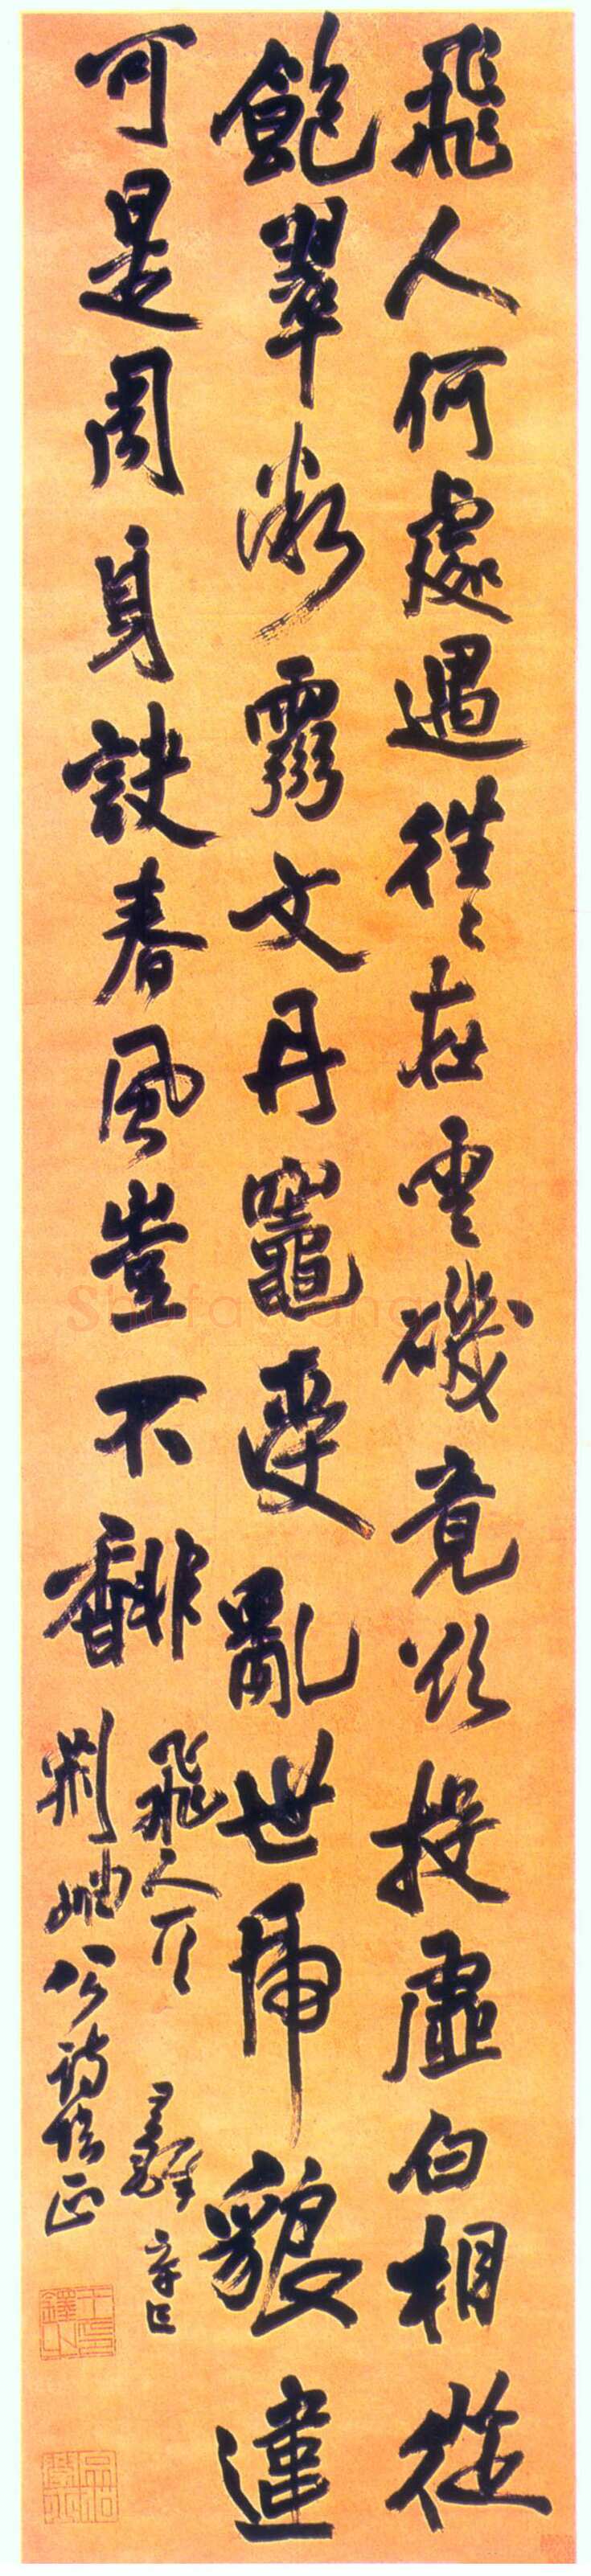 飛人何處遇往〻在雲磯竟欲投虛白相從
飽翠微霧文丹竈亂世虎違
可是周身訣春風豈不馡
飛人 王鐸 辛巳
荊岫公詩伯正
王鐸之印